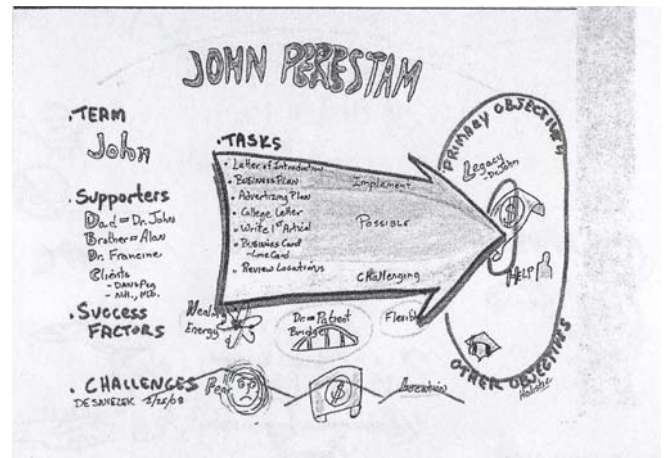 JOHN PERESTAM
• TEAM
John
• Supporters
Dad = Dr. John
Brother = Alan
Dr. Francine
Clients
- DAN & Peg
• SUCCESS FACTORS
• TASKS
• Letter of Introduction
• BUSINESS PLAN
• Advertizing Plan
• College Letter
• Write 1st Artical
• Business Card
- Line Card
• Review Locations
Implement
POSSIBLE
Challenging
PRIMARY OBJECTIVES
Legacy
- Dr. John
$
HELP
OTHER OBJECTIVES
Holistic
Energy
Dr = Patient
Bridge
Flexible
• CHALLENGES
$
Location
2/25/08